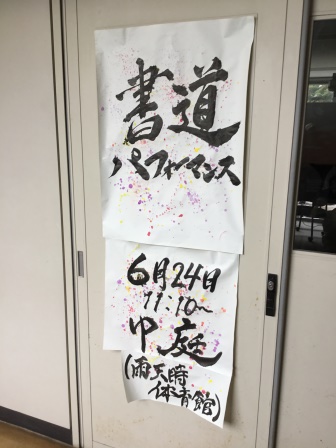 書道
パフォーマンス
6月24日
11:10~
中庭
(雨天時
体育館)